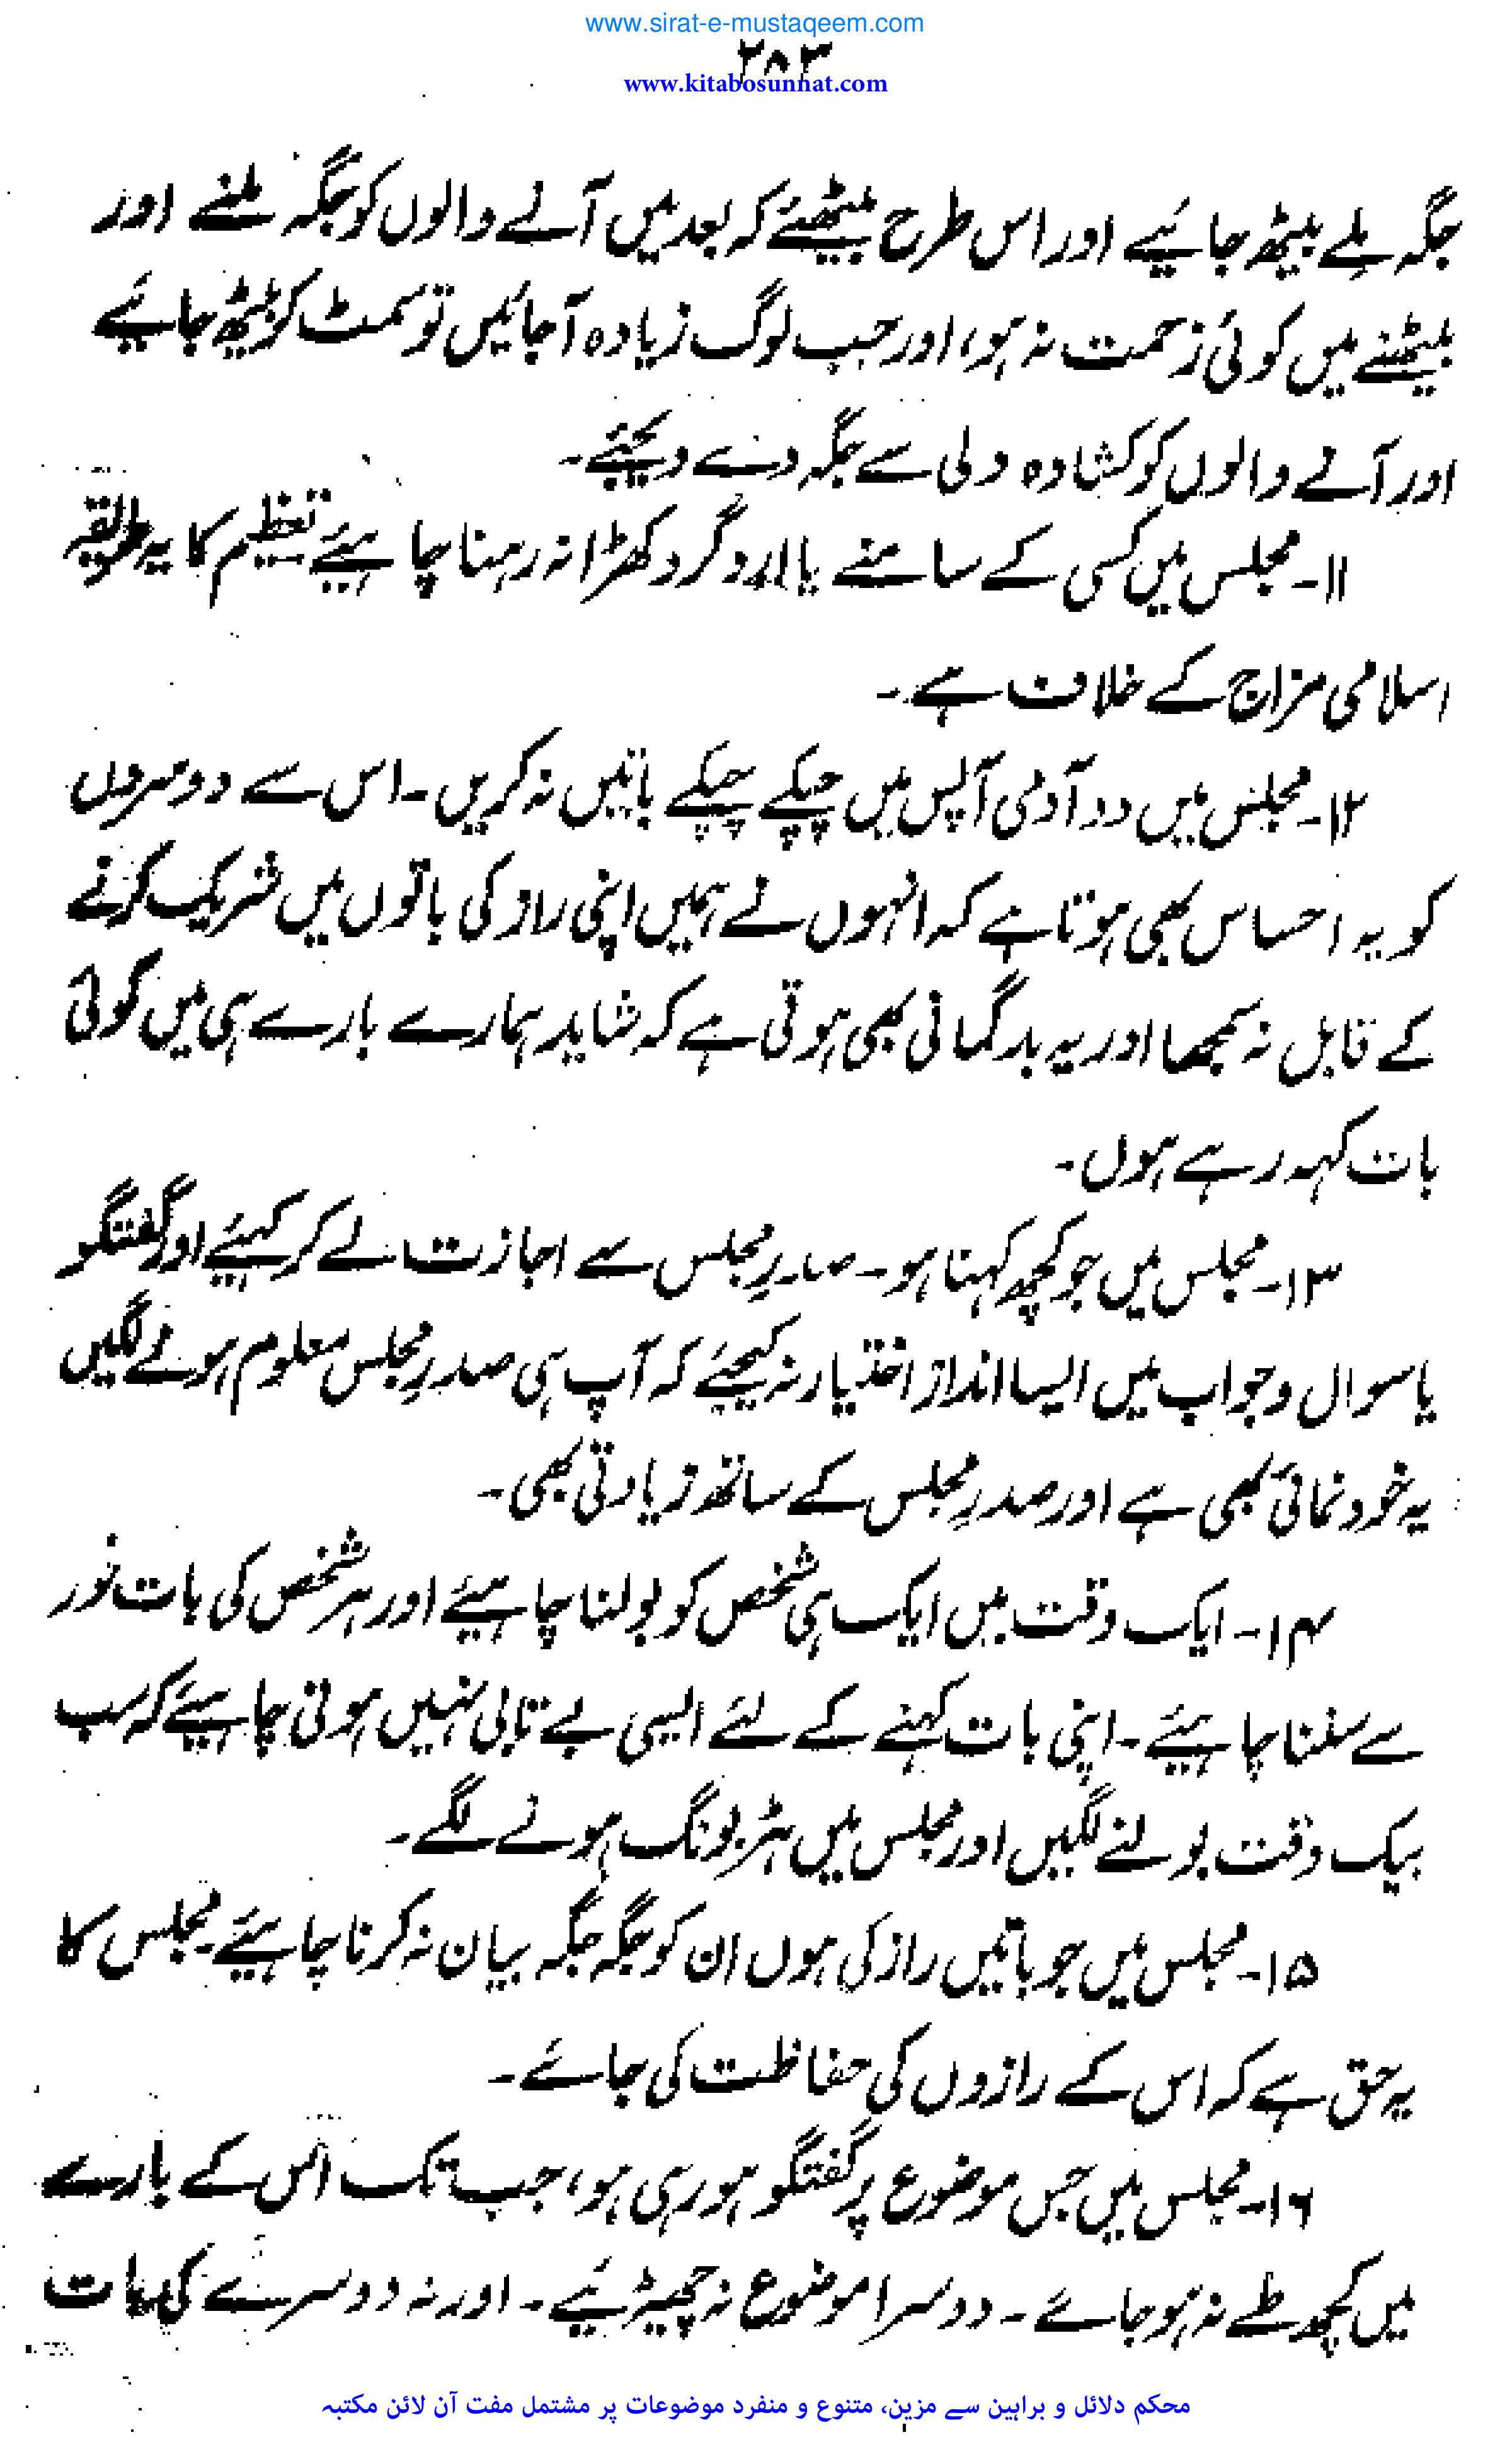 www.sirat-e-mustaqeem.com
۲۸۳
www.kitabosunnat.com
جگہ ملے بیٹھ جائیے اور اس طرح بیٹھئے کہ بعد میں آنے والوں کو جگہ ملنے اور
بیٹھنے میں کوئی زحمت نہ ہو، اور جب لوگ زیادہ آجائیں تو سمٹ کر بیٹھ جائیے
اور آنے والوں کو کشادہ دلی سے جگہ دے دیجئے۔
۱۱۔ مجلس میں کسی کے سامنے یا ارد گرد کھڑا نہ رہنا چاہیئے تعظیم کا یہ طریقہ
اسلامی مزاج کے خلاف ہے۔
۱۲۔ مجلس میں دو آدمی آپس میں چپکے چپکے باتیں نہ کریں۔ اس سے دوسروں
کو یہ احساس بھی ہوتا ہے کہ انہوں نے ہمیں اپنی راز کی باتوں میں شریک کرنے
کے قابل نہ سمجھا اور یہ بدگمانی بھی ہوتی ہے کہ شاید ہمارے بارے ہی میں کوئی
بات کہہ رہے ہوں۔
۱۳۔ مجلس میں جو کچھ کہنا ہو۔ صدرِ مجلس سے اجازت لے کر کہیئے اور گفتگو
یا سوال و جواب میں ایسا انداز اختیار نہ کیجیئے کہ آپ ہی صدرِ مجلس معلوم ہونے لگیں
یہ خود نمائی بھی ہے اور صدرِ مجلس کے ساتھ زیادتی بھی۔
۱۴۔ ایک وقت میں ایک ہی شخص کو بولنا چاہیئے اور ہر شخص کی بات غور
سے سننا چاہیئے۔ اپنی بات کہنے کے لئے ایسی بے تابی نہیں ہونی چاہیئے کہ سب
بیک وقت بولنے لگیں اور مجلس میں ہڑبونگ ہونے لگے۔
۱۵۔ مجلس میں جو باتیں راز کی ہوں ان کو جگہ جگہ بیان نہ کرنا چاہیئے۔ مجلس کا
یہ حق ہے کہ اس کے رازوں کی حفاظت کی جائے۔
۱۶۔ مجلس میں جس موضوع پر گفتگو ہو رہی ہو، جب تک اس کے بارے
میں کچھ طے نہ ہو جائے۔ دوسرا موضوع نہ چھیڑئیے۔ اور نہ دوسرے کی بات
محکم دلائل و براہین سے مزین، متنوع و منفرد موضوعات پر مشتمل مفت آن لائن مکتبہ